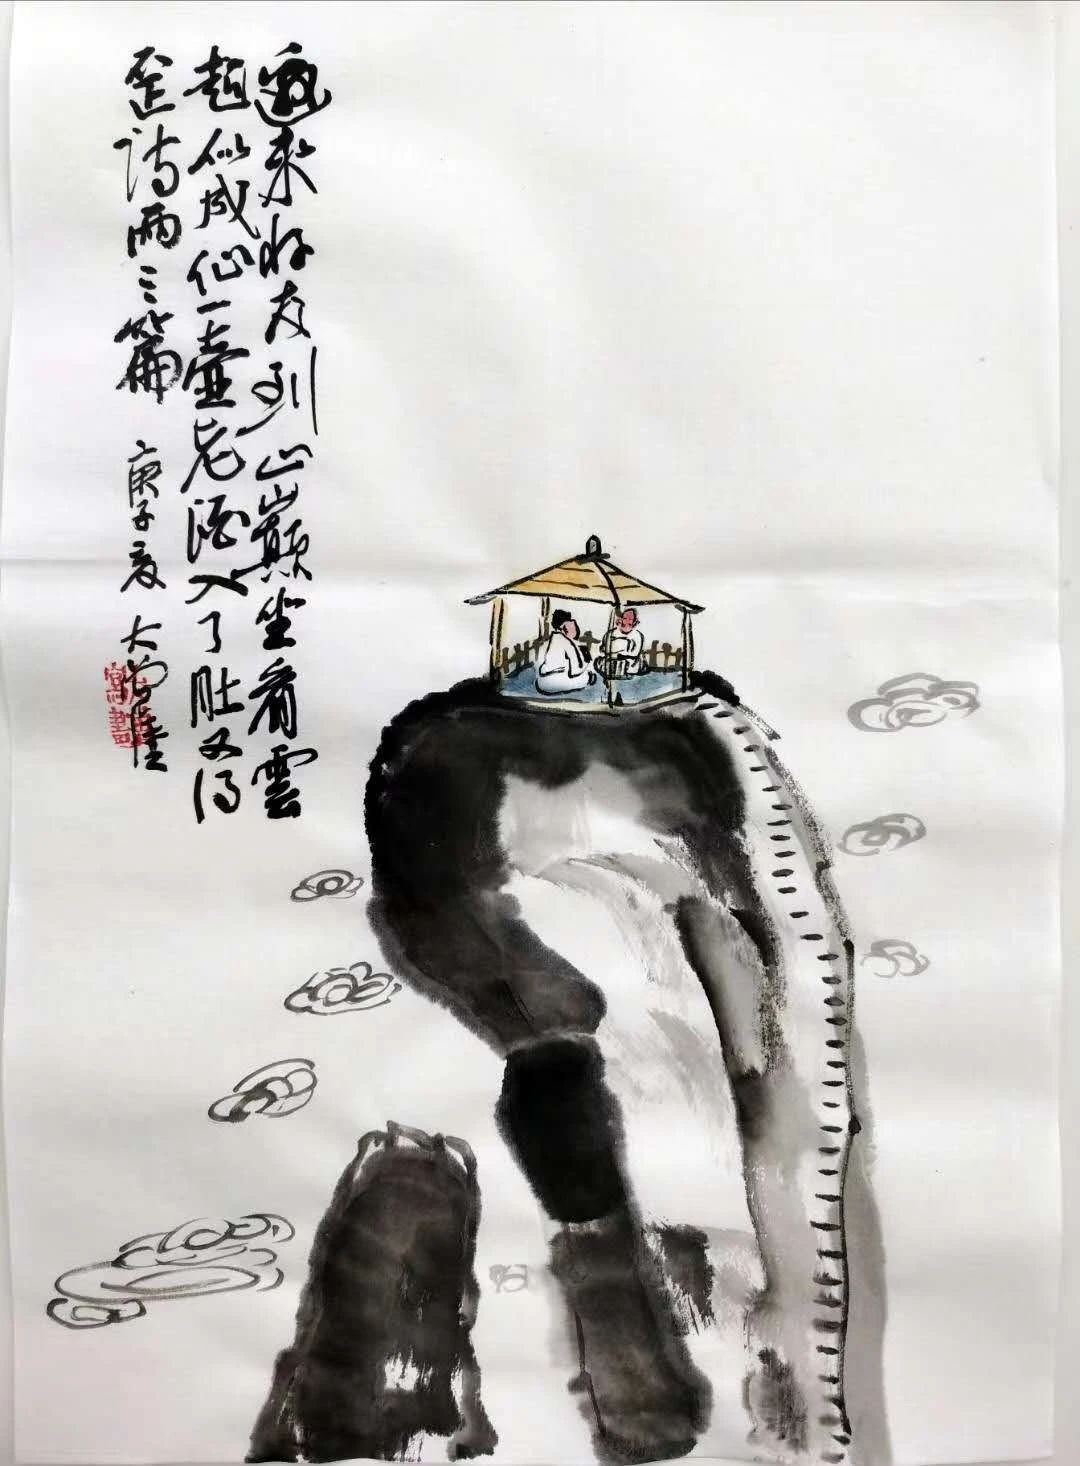 邀来好友到山巅坐看雲
起似成仙一壶老酒入了肚又得
歪诗两三篇
庚子夏 大尚